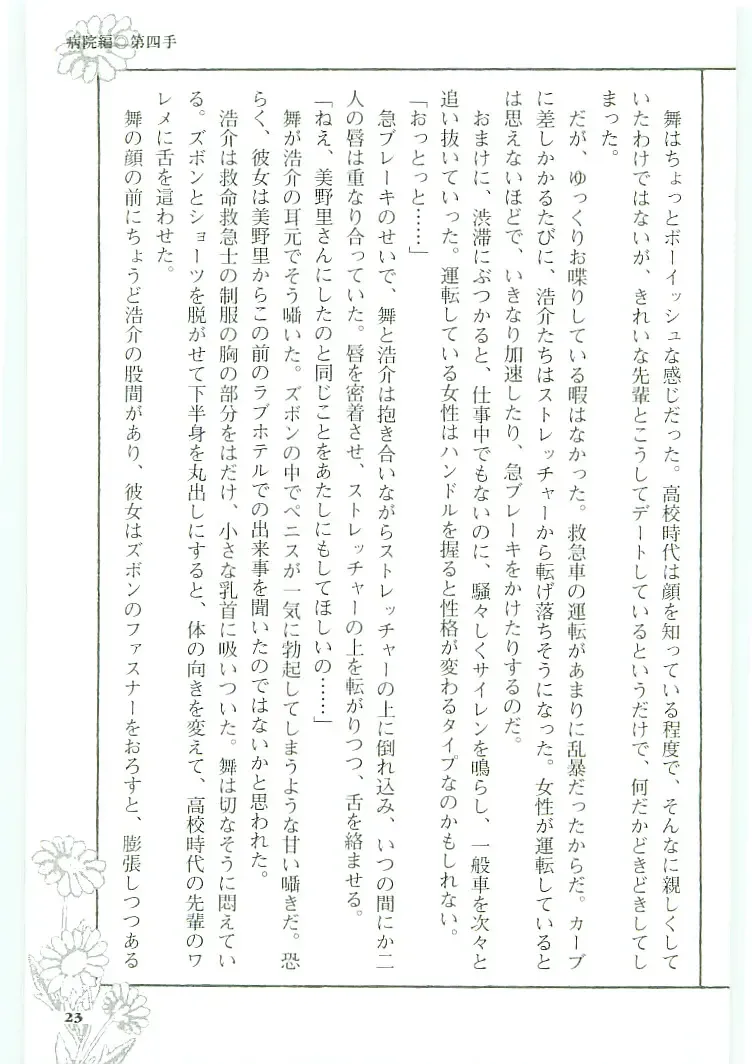 病院編◎第四手
舞はちょっとボーイッシュな感じだった。高校時代は顔を知っている程度で、そんなに親しくして
いたわけではないが、きれいな先輩とこうしてデートしているというだけで、何だかどきどきしてし
まった。
だが、ゆっくりお喋りしている暇はなかった。救急車の運転があまりに乱暴だったからだ。カーブ
に差しかかるたびに、浩介たちはストレッチャーから転げ落ちそうになった。女性が運転していると
は思えないほどで、いきなり加速したり、急ブレーキをかけたりするのだ。
おまけに、渋滞にぶつかると、仕事中でもないのに、騒々しくサイレンを鳴らし、一般車を次々と
追い抜いていった。運転している女性はハンドルを握ると性格が変わるタイプなのかもしれない。
「おっとっと……」
急ブレーキのせいで、舞と浩介は抱き合いながらストレッチャーの上に倒れ込み、いつの間にか二
人の唇は重なり合っていた。唇を密着させ、ストレッチャーの上を転がりつつ、舌を絡ませる。
「ねえ、美野里さんにしたのと同じことをあたしにもしてほしいの……」
舞が浩介の耳元でそう囁いた。ズボンの中でペニスが一気に勃起してしまうような甘い囁きだ。恐
らく、彼女は美野里からこの前のラブホテルでの出来事を聞いたのではないかと思われた。
浩介は救命救急士の制服の胸の部分をはだけ、小さな乳首に吸いついた。舞は切なそうに悶えてい
る。ズボンとショーツを脱がせて下半身を丸出しにすると、体の向きを変えて、高校時代の先輩のワ
レメに舌を這わせた。
舞の顔の前にちょうど浩介の股間があり、彼女はズボンのファスナーをおろすと、膨張しつつある
23